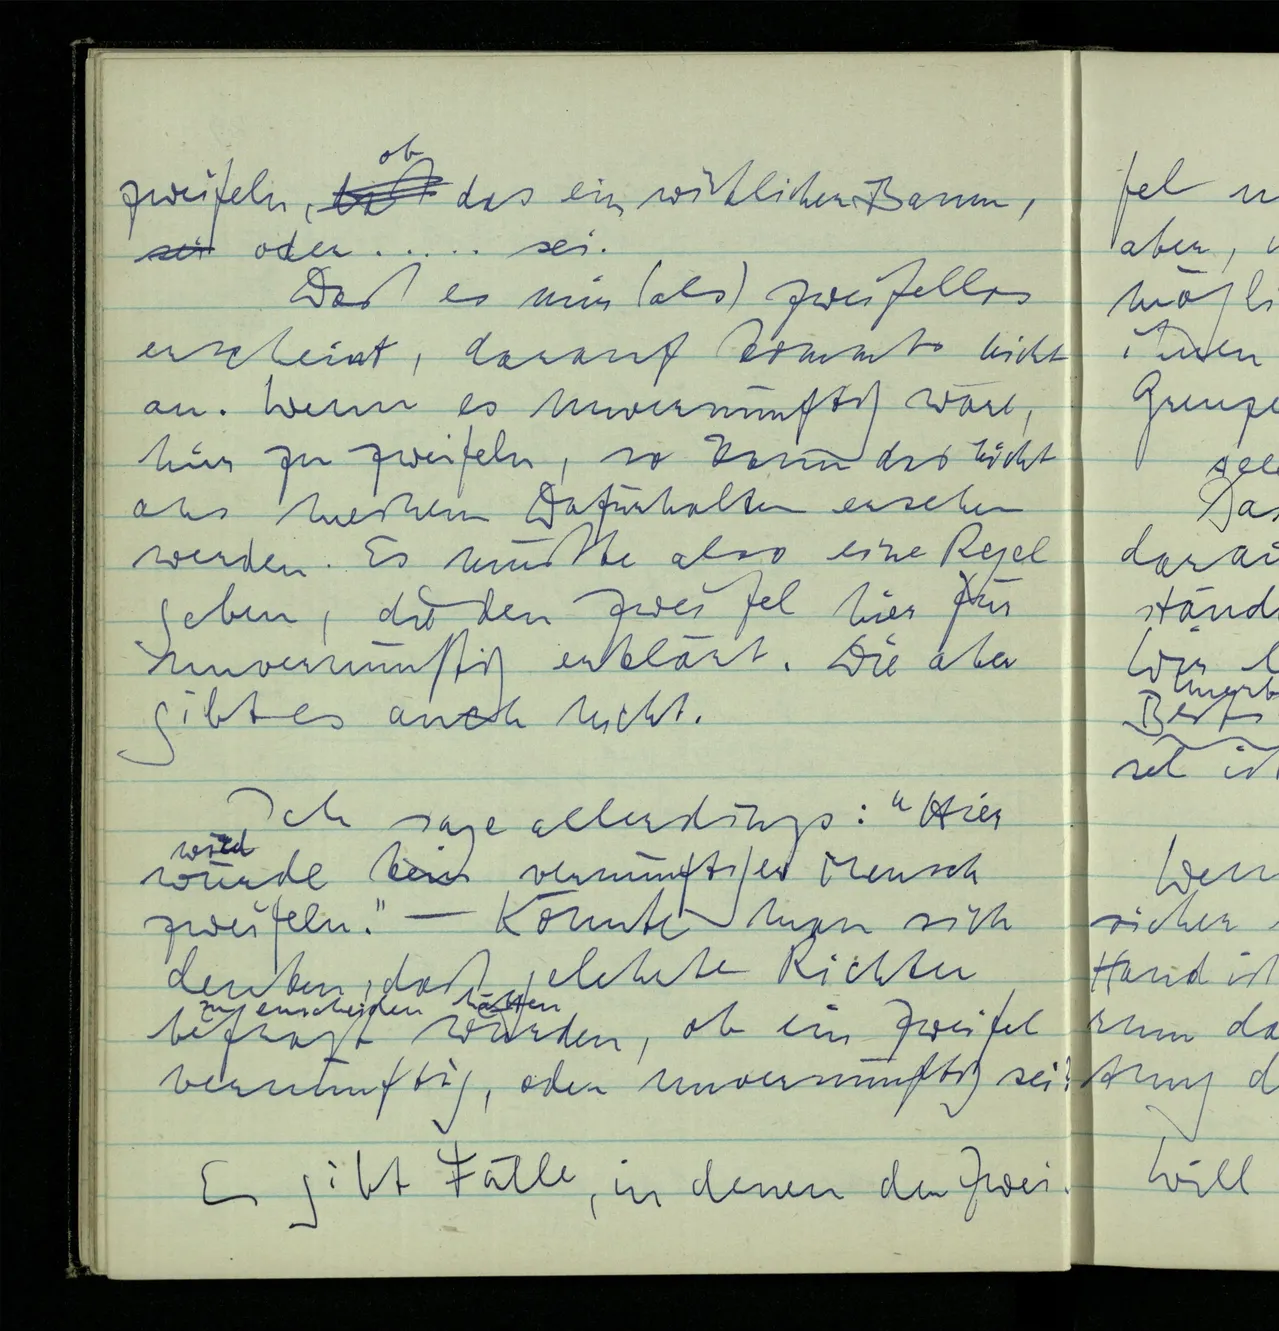 ob
zweifeln, daß das ein wirklicher Baum,
sei oder ..... sei.
Daß es mir (als) zweifellos
erscheint, darauf kommt es nicht
an. Wenn es unvernünftig wäre,
hier zu zweifeln, so kann das nicht
aus meinem Dafürhalten ersehen
werden. Es müßte also eine Regel
geben, die den Zweifel hier für
unvernünftig erklärt. Die aber
gibt es auch nicht.
Ich sage allerdings: "Hier
wird
würde kein vernünftiger Mensch
zweifeln." — Könnte man sich
denken, daß gelehrte Richter
zu entscheiden hätten
befragt würden, ob ein Zweifel
vernünftig, oder unvernünftig sei?
Es gibt Fälle, in denen der Zwei-
fel
aber,
mögli
ihnen
Grenze
Das
darau
ständ
Wir
ist
Wen
sicher
Hand ist
rum da
will